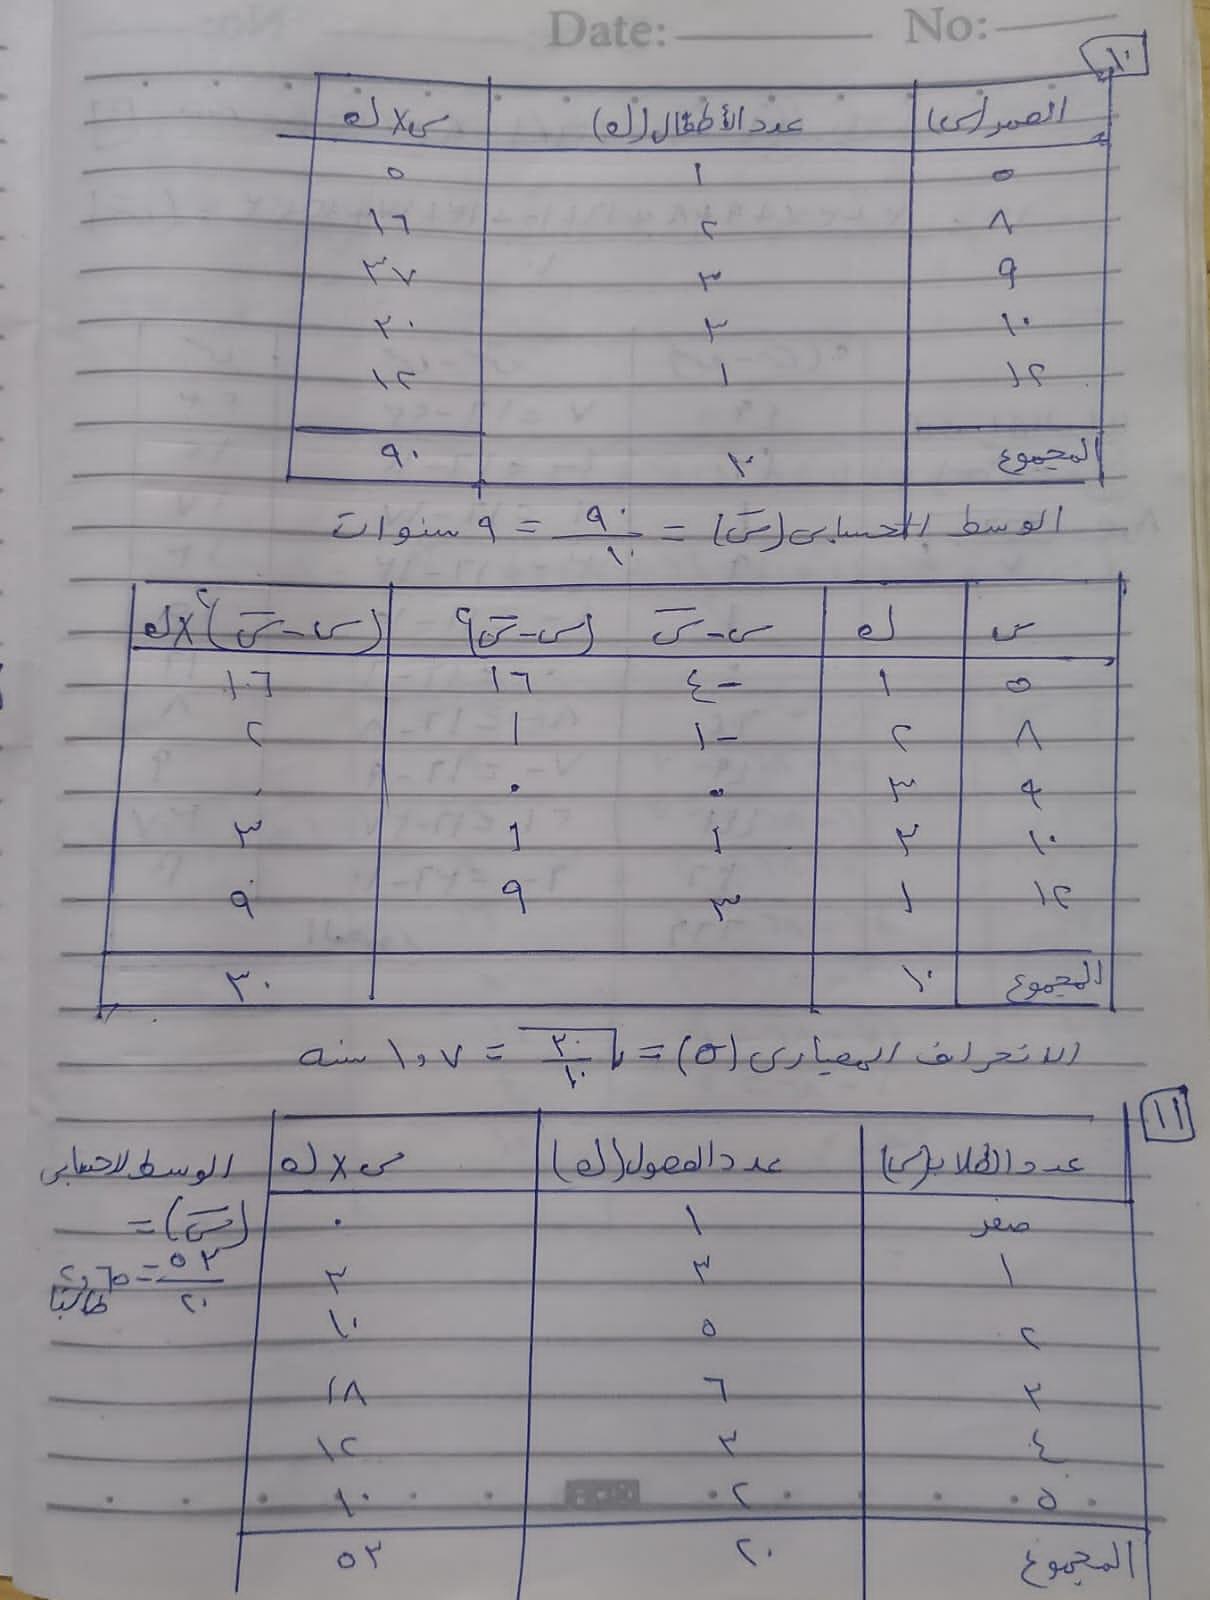 Date: No:
١٠
العمر (س) عدد الأطفال (ك) س×ك
٥ ١ ٥
٨ ٢ ١٦
٩ ٣ ٢٧
١٠ ٣ ٣٠
١٢ ١ ١٢
المجموع ١٠ ٩٠
الوسط الحسابى (س̄) = ٩٠/١٠ = ٩ سنوات
س ك س-س̄ (س-س̄)٢ (س-س̄)٢×ك
٥ ١ -٤ ١٦ ١٦
٨ ٢ -١ ١ ٢
٩ ٣ ٠ ٠ ٠
١٠ ٣ ١ ١ ٣
١٢ ١ ٣ ٩ ٩
المجموع ١٠ ٣٠
الانحراف المعيارى (σ) = √٣٠/١٠ = ١,٧ سنه
١١
عدد الطلاب (س) عدد الفصول (ك) س×ك
صفر ١ ٠
١ ٣ ٣
٢ ٥ ١٠
٣ ٦ ١٨
٤ ٣ ١٢
٥ ٢ ١٠
المجموع ٢٠ ٥٣
الوسط الحسابى
(س̄) =
٥٣/٢٠ = ٢,٦٥
طالبًا